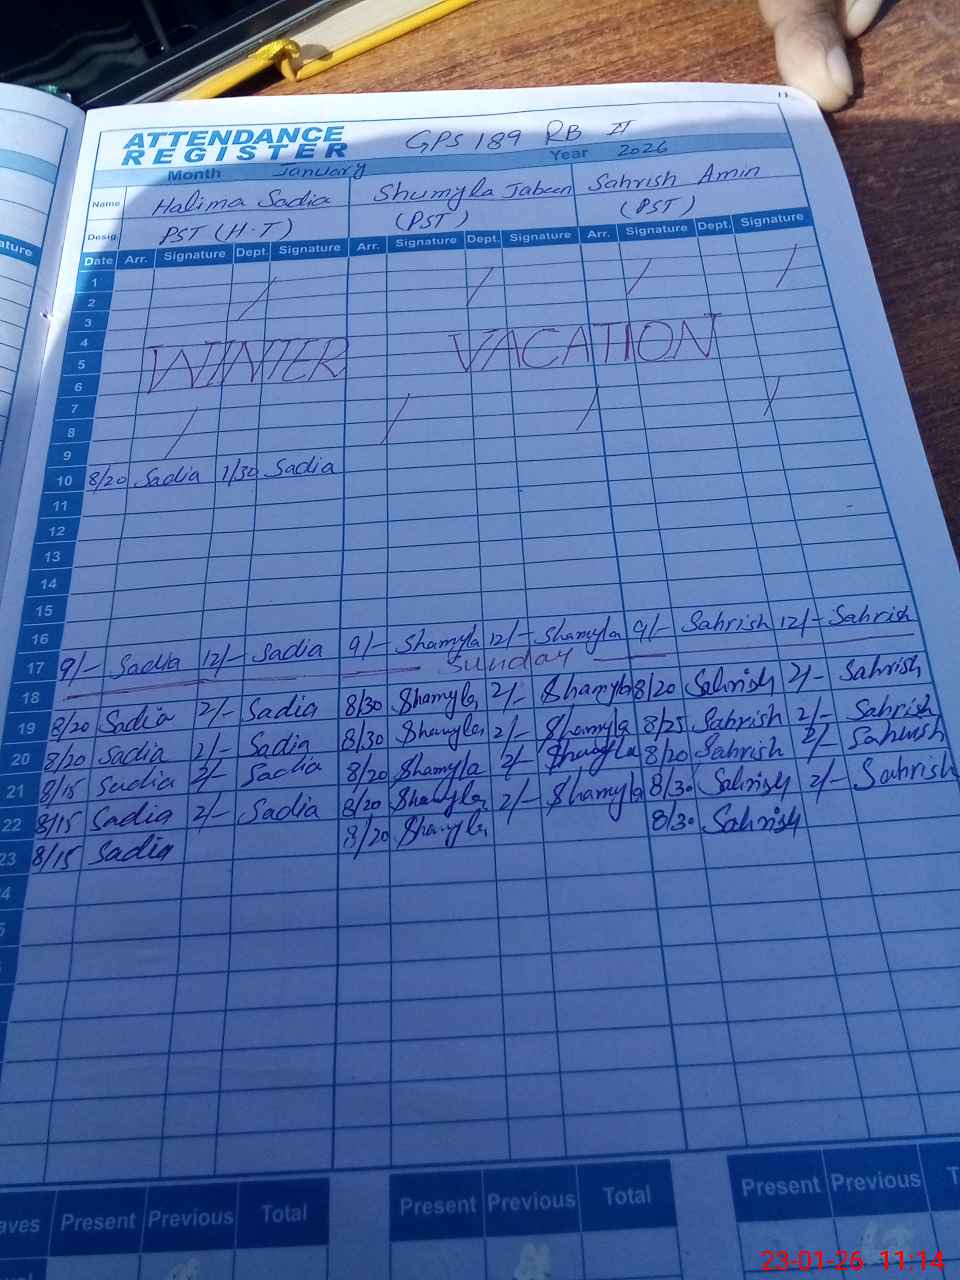 11
ATTENDANCE
REGISTER
GPS 189 RB II
Month January Year 2026
Name Halima Sadia Shumyla Jabeen Sahrish Amin
Desig. PST (H.T) (PST) (PST)
Date Arr. Signature Dept. Signature Arr. Signature Dept. Signature Arr. Signature Dept. Signature
1
2
3
4
5
WINTER VACATION
6
7
8
9
10 8/20 Sadia 1/30 Sadia
11
12
13
14
15
16
17 9/- Sadia 12/- Sadia 9/- Shamyla 12/- Shamyla 9/- Sahrish 12/- Sahrish
Sunday
18
19 8/20 Sadia 2/- Sadia 8/30 Shamyla 2/- Shamyla 8/20 Sahrish 2/- Sahrish
20 8/20 Sadia 2/- Sadia 8/30 Shamyla 2/- Shamyla 8/25 Sahrish 2/- Sahrish
21 8/15 Sadia 2/- Sadia 8/20 Shamyla 2/- Shamyla 8/20 Sahrish 2/- Sahrish
22 8/15 Sadia 2/- Sadia 8/20 Shamyla 2/- Shamyla 8/30 Sahrish 2/- Sahrish
23 8/15 Sadia 8/20 Shamyla 8/30 Sahrish
Present Previous Total Present Previous Total Present Previous
23-01-26 11:14